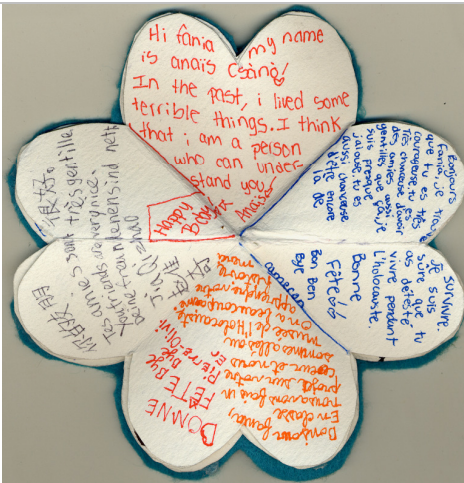 Hi fania my name
is anaïs Csàng!
In the past, i lived some
terrible things. I think
that i am a person
who can under-
stand you
Anaïs
Happy
Bday
Bonjours
Fania, je trouve
que tu es très
courageuse. tu es
très chanceuse d'avoir
des amies aussi
gentilles que ça, je
suis presque
jalouse. tu es
aussi chanceuse
d'être encore
là de
survivre.
Je suis
sûre que tu
as détesté
vivre pendant
l'holocauste.
Bonne
Fête!!
Bon Bon
Bye
Bonjour Fania,
En classe
nous avons fait un
projet sur votre
coeur et nous
somme allés au
musée de l'Holocauste
on a beaucoup
apprendre votre
histoire
BONNE
FÊTE Bye
Bye
Pierre Olivi
Er
Tes amies sont très gentille.
Your friends are very nice.
Deine freundinnen sind nett
Jia Qi zhao